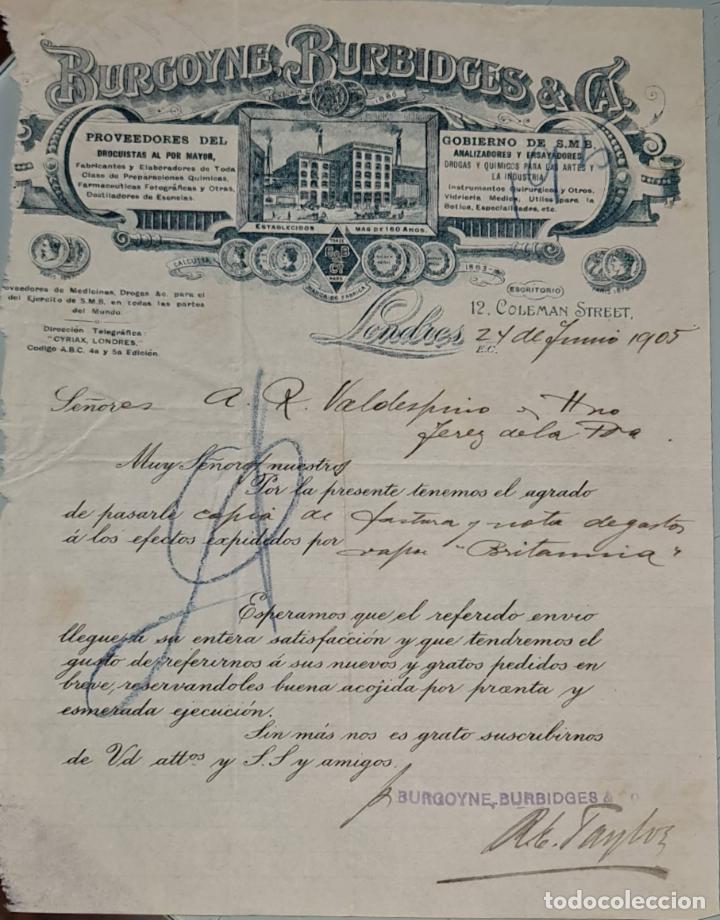 BURGOYNE, BURBIDGES & CA.
PROVEEDORES DEL
DROGUISTAS AL POR MAYOR,
Fabricantes y Elaboradores de Toda
Clase de Preparaciones Quimicas,
Farmaceuticas Fotográficas y Otras,
Destiladores de Esencias.
GOBIERNO DE S.M.B.
ANALIZADORES Y ENSAYADORES
DROGAS Y QUIMICOS PARA LAS ARTES Y
LA INDUSTRIA
Instrumentos Quirurgicos y Otros,
Vidrieria Medica, Utiles para la
Botica, Especialidades, etc.
ESTABLECIDOS MAS DE 160 AÑOS.
CALCUTTA
TRADE
B B
& Co
MARK
MARCA DE FABRICA
1883-4
PARIS 1878
oveedores de Medicinas, Drogas &c. para el
del Ejercito de S.M.B. en todas las partes
del Mundo.
Dirección Telegráfica:
"CYRIAX, LONDRES."
Codigo A.B.C. 4a y 5a Edición.
ESCRITORIO
12, COLEMAN STREET,
E.C.
Londres, 24 de Junio 1905
Señores A. R. Valdespino y Hno
Jerez de la Fra
Muy Señores nuestros
Por la presente tenemos el agrado
de pasarle copia de factura y nota de gastos
á los efectos expididos por vapor "Britannia"
Esperamos que el referido envio
llegue á su entera satisfacción y que tendremos el
gusto de referirnos á sus nuevos y gratos pedidos en
breve, reservandoles buena acojida por pronta y
esmerada ejecución.
Sin más nos es grato suscribirnos
de Vd attos y S.S y amigos.
BURGOYNE, BURBIDGES &
Taylor
todocoleccion